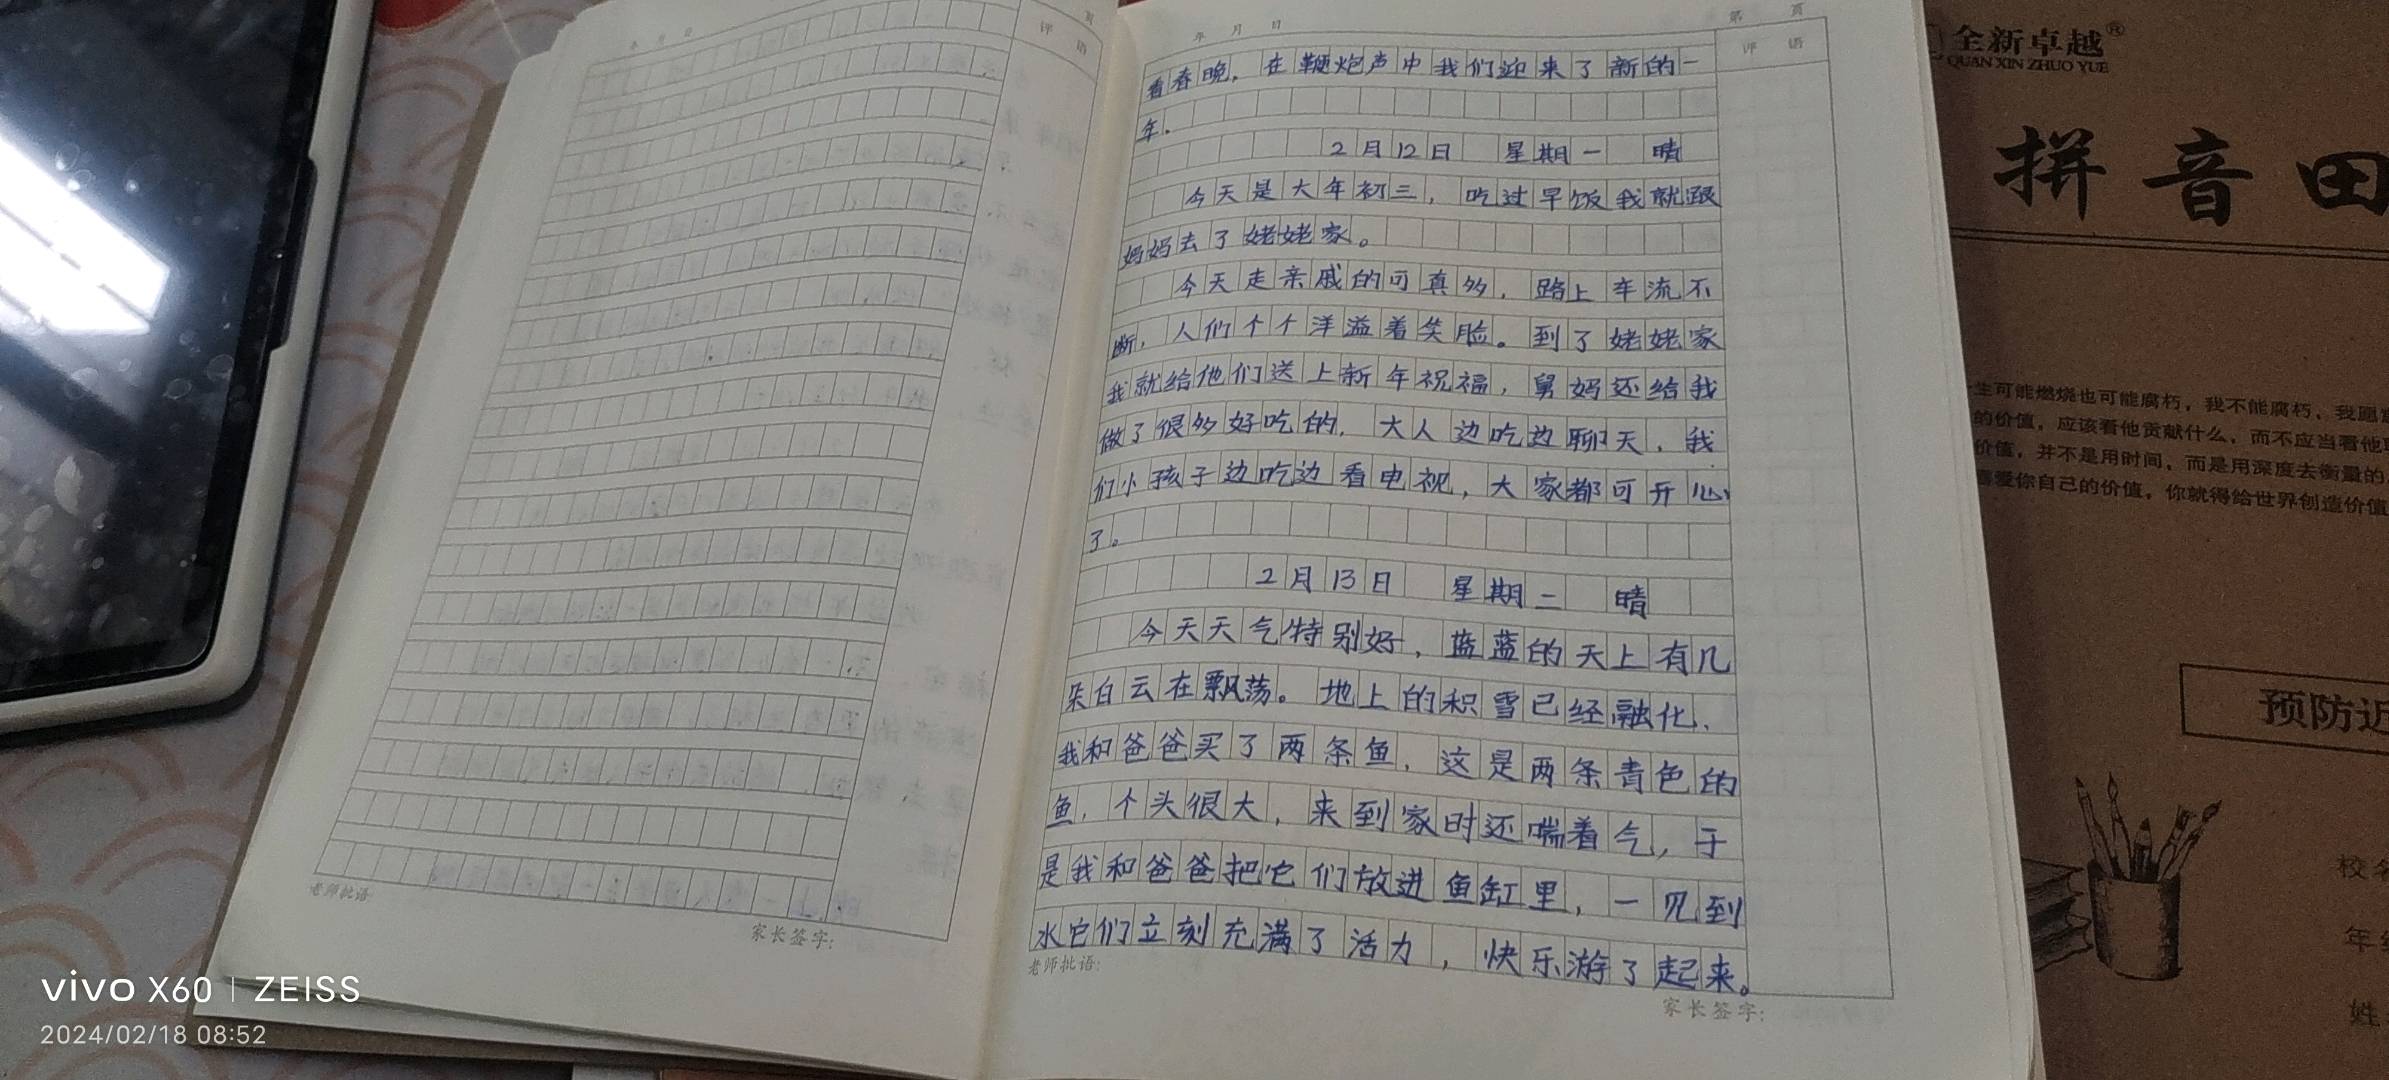 页
评 语
年 月 日
老师批语:
家长签字:
年 月 日
第 页
评 语
看春晚，在鞭炮声中我们迎来了新的一
年.
2月12日 星期一 晴
今天是大年初三，吃过早饭我就跟
妈妈去了姥姥家。
今天走亲戚的可真多，路上车流不
断，人们个个洋溢着笑脸。到了姥姥家
我就给他们送上新年祝福，舅妈还给我
做了很多好吃的，大人边吃边聊天，我
们小孩子边吃边看电视，大家都可开心
了。
2月13日 星期二 晴
今天天气特别好，蓝蓝的天上有几
朵白云在飘荡。地上的积雪已经融化、
我和爸爸买了两条鱼，这是两条青色的
鱼，个头很大，来到家时还喘着气，于
是我和爸爸把它们放进鱼缸里，一见到
水它们立刻充满了活力，快乐游了起来。
老师批语:
家长签字:
全新卓越®
QUAN XIN ZHUO YUE
拼音田
生可能燃烧也可能腐朽，我不能腐朽，我愿
的价值，应该看他贡献什么，而不应当看他
价值，并不是用时间，而是用深度去衡量的
喜爱你自己的价值，你就得给世界创造价值
预防近
校名
年级
姓
vivo X60 | ZEISS
2024/02/18 08:52